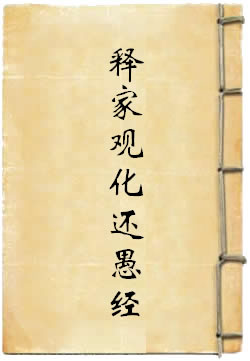 释家观化还愚经